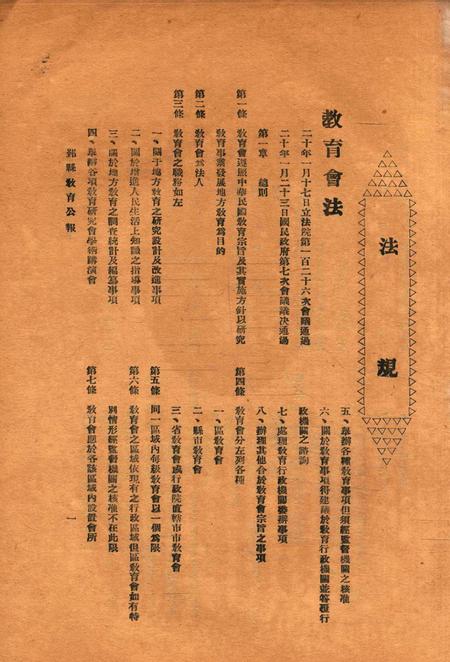 法規
教育會法
二十年一月十七日立法院第一百二十六次會議通過
二十年一月二十三日國民政府第七次會議議决通過
第一章 總則
第一條 教育會遵照中華民國教育宗旨及其實施方針以研究
教育事業發展地方教育爲目的
第二條 教育會爲法人
第三條 教育會之職務如左
一、關于地方教育之研究設計及改進事項
二、關於增進人民生活上知識之指導事項
三、關於地方教育之調查統計及編纂事項
四、舉辦各項教育研究會學術講演會
五、舉辦各種教育事項但須經監督機關之核准
六、關於教育事項得建議於教育行政機關並答覆行
政機關之諮詢
七、處理教育行政機關委辦事項
八、辦理其他合於教育會宗旨之事項
第四條 教育會分左列各種
一、區教育會
二、縣市教育會
三、省教育會或行政院直轄市市教育會
第五條 同一區域內每級教育會以一個爲限
第六條 教育會之區域依現有之行政區域但區教育會如有特
別情形經監督機關之核准不在此限
第七條 教育會應於各該區域內設置會所
鄞縣教育公報
一